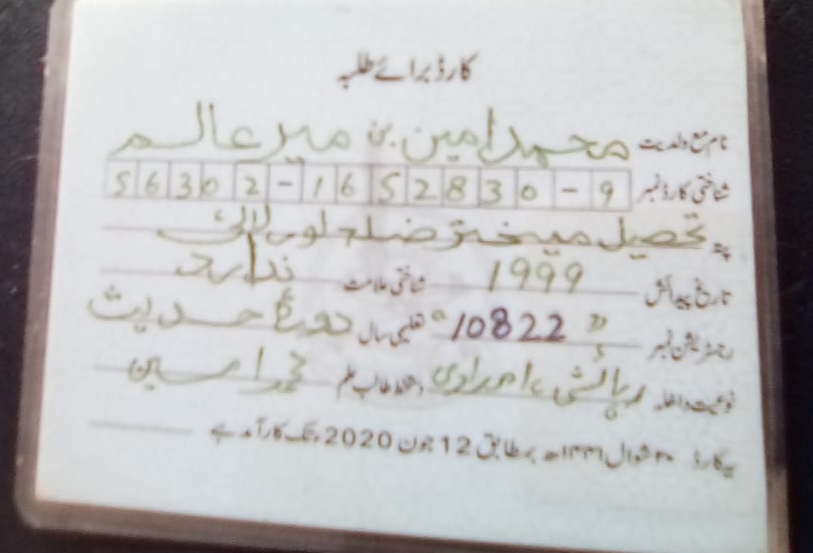 کارڈ برائے طلبہ
نام مع ولدیت محمد امین بن میر عالم
شناختی کارڈ نمبر 56302-1652830-9
پتہ تحصیل میختر ضلع لورالائی
تاریخ پیدائش 1999 شناختی علامت ندارد
رجسٹریشن نمبر "10822" تعلیمی سال دورۂ حدیث
نوعیت داخلہ رہائشی، امدادی دستخط طالب علم محمد امین
یہ کارڈ ۲۰ شوال ۱۴۴۱ھ بمطابق 12 جون 2020 تک کارآمد ہے